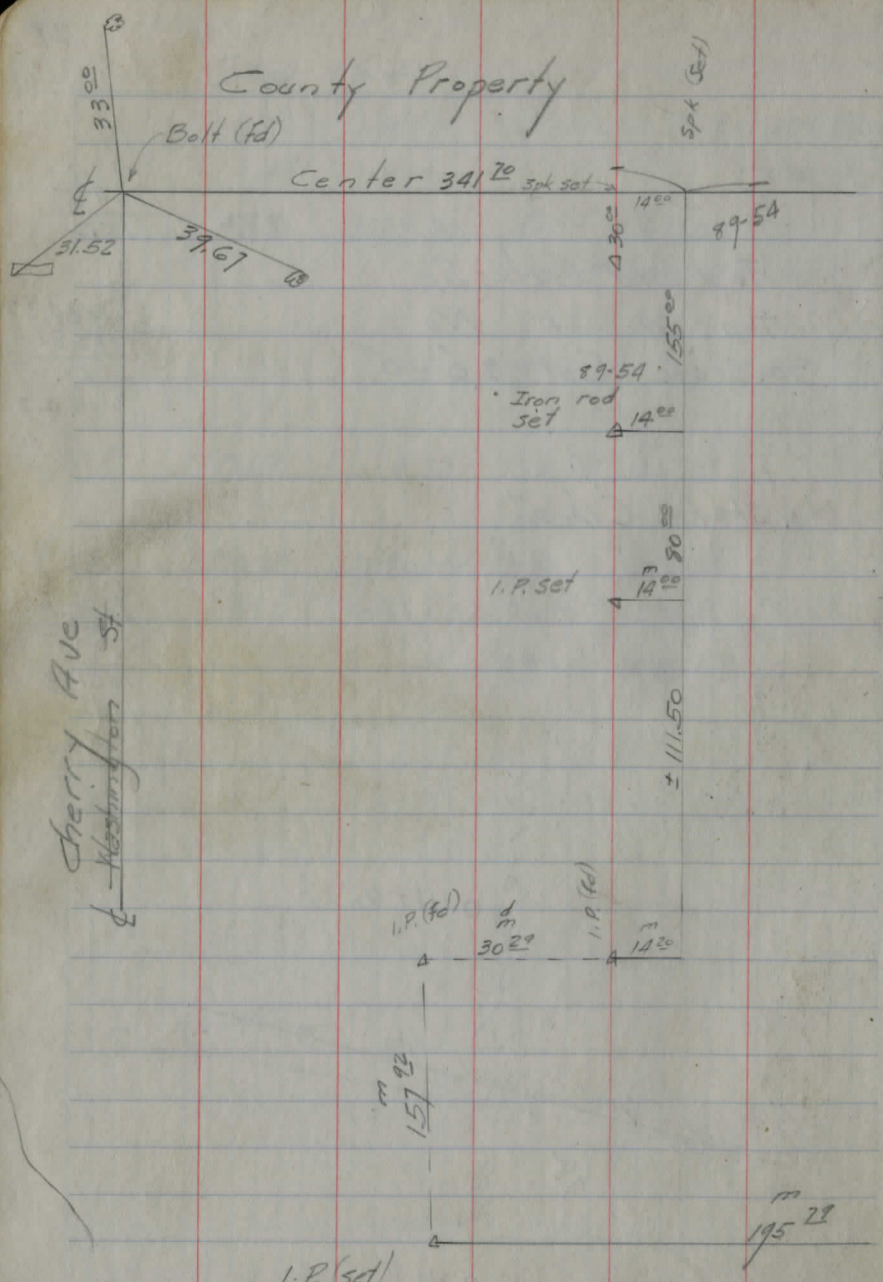 County Property
Spk (Set)
33 00
Bolt (fd)
℄
Center 341 70 Spk set
14 00
89-54
31.52
39.67
30 00
155 00
89-54
Iron rod
set
14 00
80 00
m
I.P. set
14 00
Cherry Ave
Washington St
± 111.50
℄
I.P. (fd)
d
m
30 29
I.P. (fd)
m
14 20
m
157 92
m
195 29
I.P. (set)